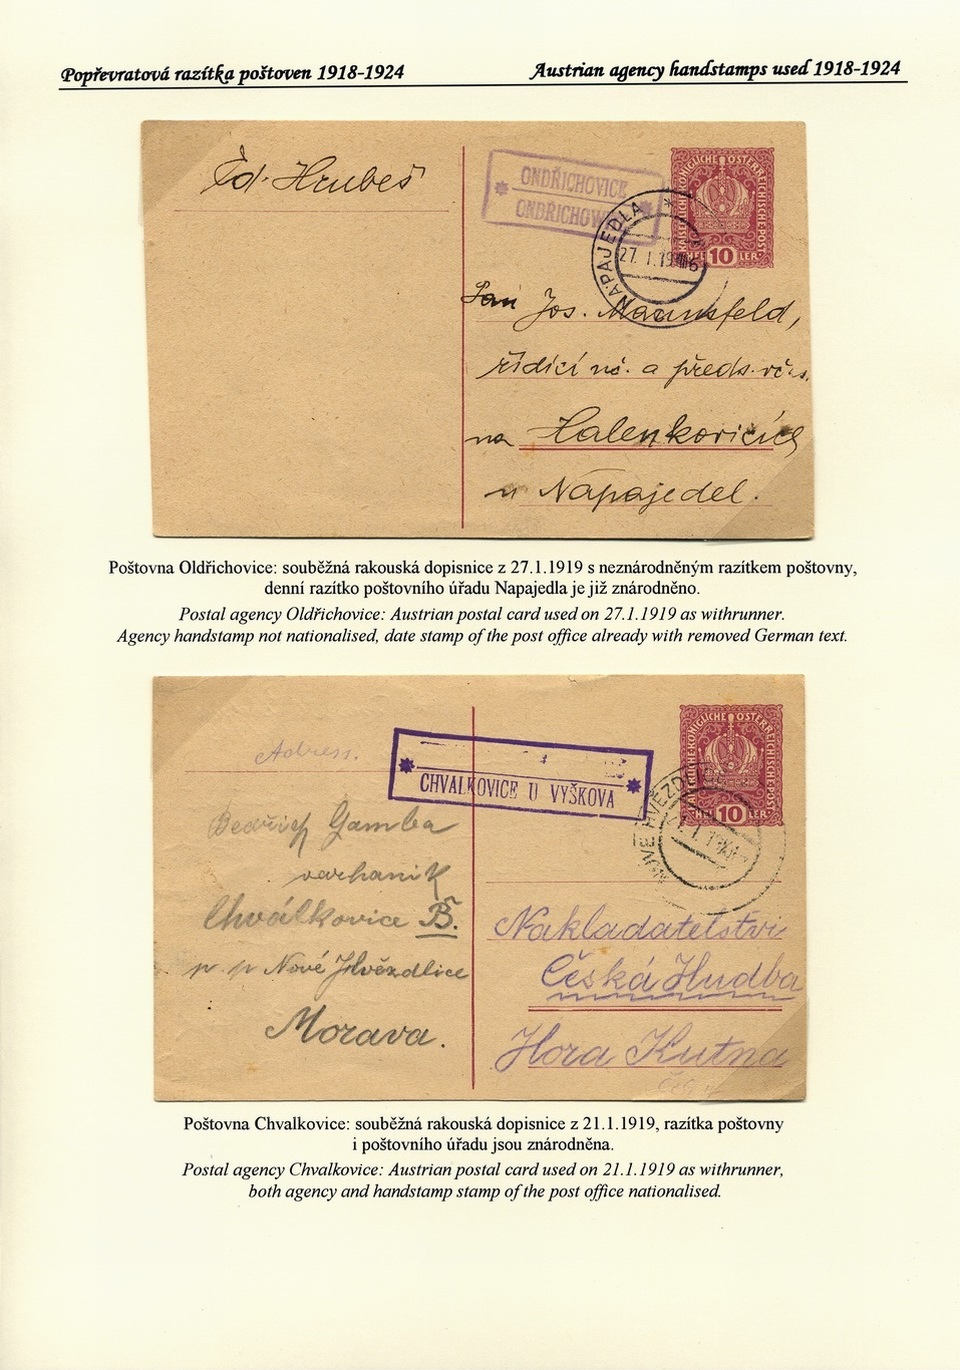 Popřevratová razítka poštoven 1918-1924
Austrian agency handstamps used 1918-1924
Ed. Hrubeš
ONDŘICHOVICE
KAISERLICHE KÖNIGLICHE ÖSTERREICHISCHE POST
10
NAPAJEDLA
27. I. 19
Pan Jos. Mannsfeld,
řídící uč. a předs.
na Halenkovicích
u Napajedel.
Poštovna Oldřichovice: souběžná rakouská dopisnice z 27.1.1919 s neznárodněným razítkem poštovny,
denní razítko poštovního úřadu Napajedla je již znárodněno.
Postal agency Oldřichovice: Austrian postal card used on 27.1.1919 as withrunner.
Agency handstamp not nationalised, date stamp of the post office already with removed German text.
Adress.
CHVALKOVICE U VYŠKOVA
KÖNIGLICHE ÖSTERREICHISCHE POST
10
NOVÉ HVĚZDLICE
Bedřich Gamba
varhaník
Chválkovice B.
p. p. Nové Hvězdlice
Morava.
Nakladatelství
Česká Hudba
Hora Kutna
Poštovna Chvalkovice: souběžná rakouská dopisnice z 21.1.1919, razítka poštovny
i poštovního úřadu jsou znárodněna.
Postal agency Chvalkovice: Austrian postal card used on 21.1.1919 as withrunner,
both agency and handstamp stamp of the post office nationalised.